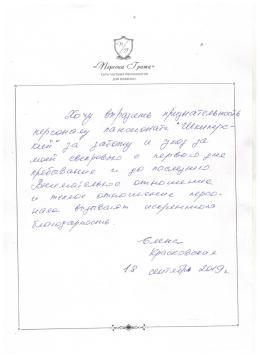 «Персона Грата»
Сеть частных пансионатов
для пожилых
Хочу выразить признательность
персоналу пансионата
за заботу и уход за
моей свекровью с первого дня
пребывания и до последнего.
Внимательное отношение
и теплое отношение персо-
нала вызывают искреннюю
благодарность.
Елена
Красковская
18 сентября 2019г.